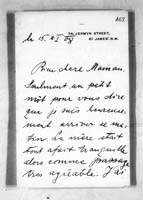 76, JERMYN STREET,
ST JAMES' S.W.
le 15
Bien chère Maman,
Seulement un petit
mot pour vous dire
que je suis heureuse-
ment arrivée
la mère était
tout à fait tranquille
alors comme passage
très agréable. J'ai